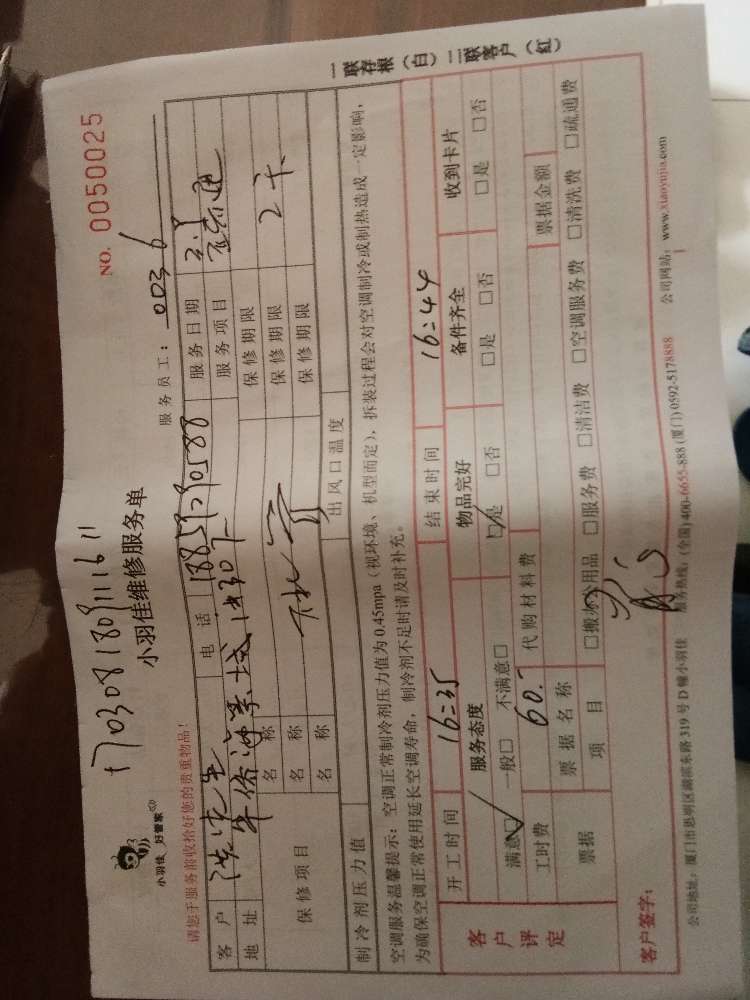 一联存根（白）二联客户（红）
NO. 0050025
1703081809111611
小羽佳 好管家
小羽佳维修服务单
请您于服务前收拾好您的贵重物品！
服务员工： 0036
客户 先生 电话 服务日期
地址 服务项目
保修项目 名称 保修期限
名称 保修期限 2年
名称 保修期限
制冷剂压力值 出风口温度
空调服务温馨提示：空调正常制冷剂压力值为0.45mpa（视环境、机型而定），拆装过程会对空调制冷或制热造成一定影响，
为确保空调正常使用延长空调寿命，制冷剂不足时请及时补充。
客户评定
开工时间 16:35 结束时间 16:44
服务态度 物品完好 备件齐全 收到卡片
满意☑ 一般□ 不满意□ ☑是 □否 □是 □否 □是 □否
工时费 60. 代购材料费 票据金额
票据 票据名称
项目 □搬办公用品 □服务费 □清洁费 □空调服务费 □清洗费 □疏通费
客户签字：
公司地址：厦门市思明区湖滨东路319号D幢小羽佳 服务热线：(全国) 400-6655-888 (厦门) 0592-5178888 公司网站：www.xiaoyujia.com